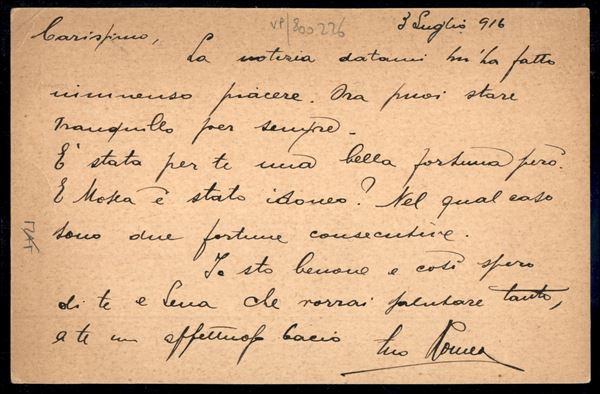 VP/800.226
3 Luglio 916
Carissimo,
La notizia datami m'ha fatto
immenso piacere. Ora puoi stare
tranquillo per sempre.
E' stata per te una bella fortuna però.
E Mosca è stato idoneo? Nel qual caso
sono due fortune consecutive.
Io sto benone e così spero
di te e Lena che vorrai salutare tanto,
a te un affettuoso bacio tuo Romeo